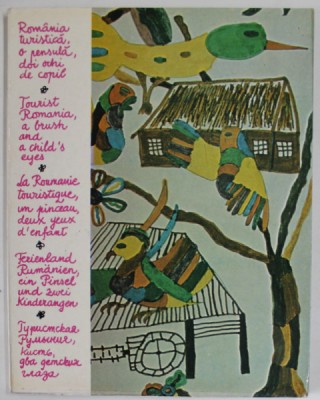 România
turistică,
o pensulă,
doi ochi
de copil
Tourist
Romania,
a brush
and
a child's
eyes
La Roumanie
touristique,
un pinceau,
deux yeux
d'enfant
Ferienland
Rumänien,
ein Pinsel
und zwei
Kinderaugen
Туристская
Румыния,
кисть,
два детских
глаза